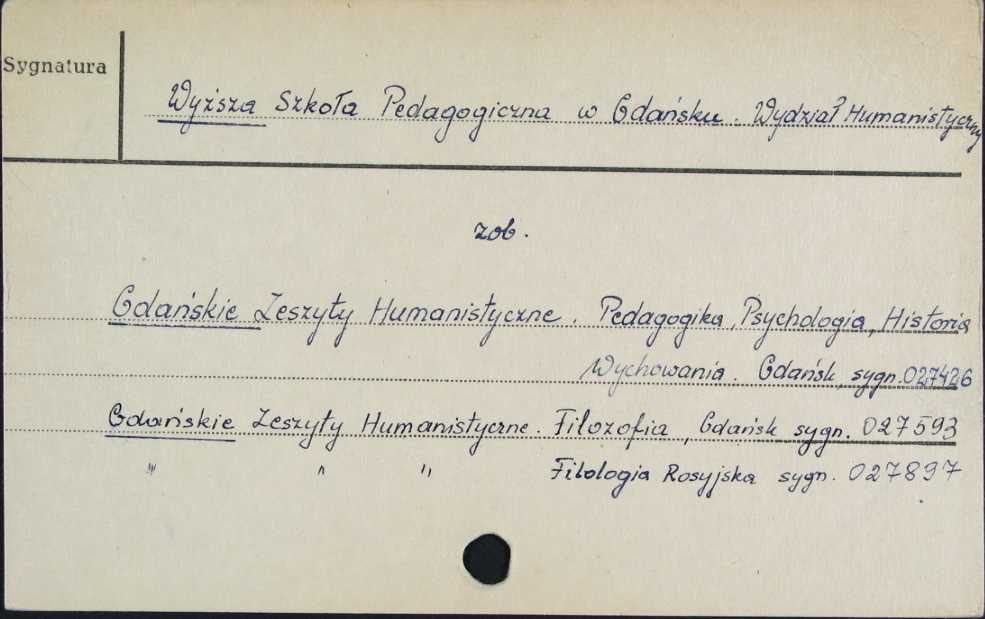 Sygnatura
Wyższa Szkoła Pedagogiczna w Gdańsku. Wydział Humanistyczny
zob.
Gdańskie Zeszyty Humanistyczne. Pedagogika, Psychologia, Historia
Wychowania. Gdańsk, sygn. 027426
Gdańskie Zeszyty Humanistyczne. Filozofia, Gdańsk sygn. 027593
" " " Filologia Rosyjska sygn. 027897